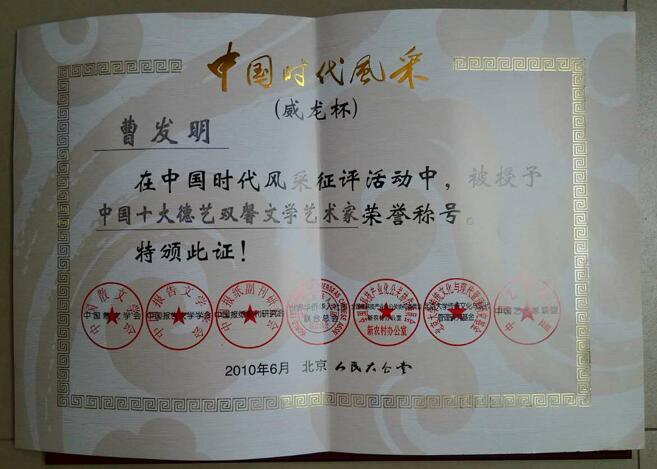 中国时代风采
(威龙杯)
曹发明
在中国时代风采征评活动中，被授予
中国十大德艺双馨文学艺术家荣誉称号。
特颁此证！
中国散文学会
中国报告文学学会
中国报纸副刊研究会
联合总会
新农村办公室
2010年6月 北京 人民大会堂